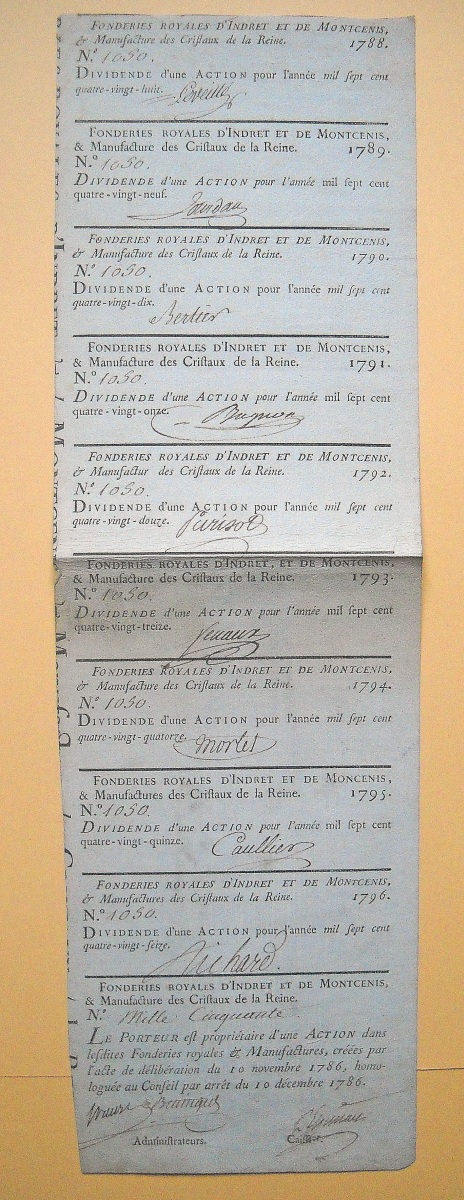 FONDERIES ROYALES D'INDRET ET DE MONTCENIS,
& Manufacture des Criſtaux de la Reine. 1788.
N.º 1050.
DIVIDENDE d'une ACTION pour l'année mil ſept cent
quatre-vingt-huit. Léveillé
FONDERIES ROYALES D'INDRET ET DE MONTCENIS,
& Manufacture des Criſtaux de la Reine. 1789.
N.º 1050.
DIVIDENDE d'une ACTION pour l'année mil ſept cent
quatre-vingt-neuf. Jourdan
FONDERIES ROYALES D'INDRET ET DE MONTCENIS,
& Manufacture des Criſtaux de la Reine. 1790.
N.º 1050.
DIVIDENDE d'une ACTION pour l'année mil ſept cent
quatre-vingt-dix. Bertier
FONDERIES ROYALES D'INDRET ET DE MONTCENIS,
& Manufacture des Criſtaux de la Reine. 1791.
N.º 1050.
DIVIDENDE d'une ACTION pour l'année mil ſept cent
quatre-vingt-onze.
FONDERIES ROYALES D'INDRET ET DE MONTCENIS,
& Manufactur des Criſtaux de la Reine. 1792.
N.º 1050.
DIVIDENDE d'une ACTION pour l'année mil ſept cent
quatre-vingt-douze. Parisot
FONDERIES ROYALES D'INDRET, ET DE MONTCENIS,
& Manufacture des Criſtaux de la Reine. 1793.
N.º 1050.
DIVIDENDE d'une ACTION pour l'année mil ſept cent
quatre-vingt-treize.
FONDERIES ROYALES D'INDRET ET DE MONTCENIS,
& Manufacture des Criſtaux de la Reine. 1794.
N.º 1050.
DIVIDENDE d'une ACTION pour l'année mil ſept cent
quatre-vingt-quatorze. Mortet
FONDERIES ROYALES D'INDRET ET DE MONCENIS,
& Manufactures des Criſtaux de la Reine. 1795.
N.º 1050.
DIVIDENDE d'une ACTION pour l'année mil ſept cent
quatre-vingt-quinze. Caullier
FONDERIES ROYALES D'INDRET ET DE MONTCENIS,
& Manufactures des Criſtaux de la Reine. 1796.
N.º 1050.
DIVIDENDE d'une ACTION pour l'année mil ſept cent
quatre-vingt-ſeize. Richard.
FONDERIES ROYALES D'INDRET ET DE MONTCENIS,
& Manufacture des Criſtaux de la Reine.
N.º Mille Cinquante
LE PORTEUR eſt propriétaire d'une ACTION dans
leſdites Fonderies royales & Manufactures, créées par
l'acte de délibération du 10 novembre 1786, homo-
loguée au Conſeil par arrêt du 10 décembre 1786.
Adminiſtrateurs. Caiſſier.